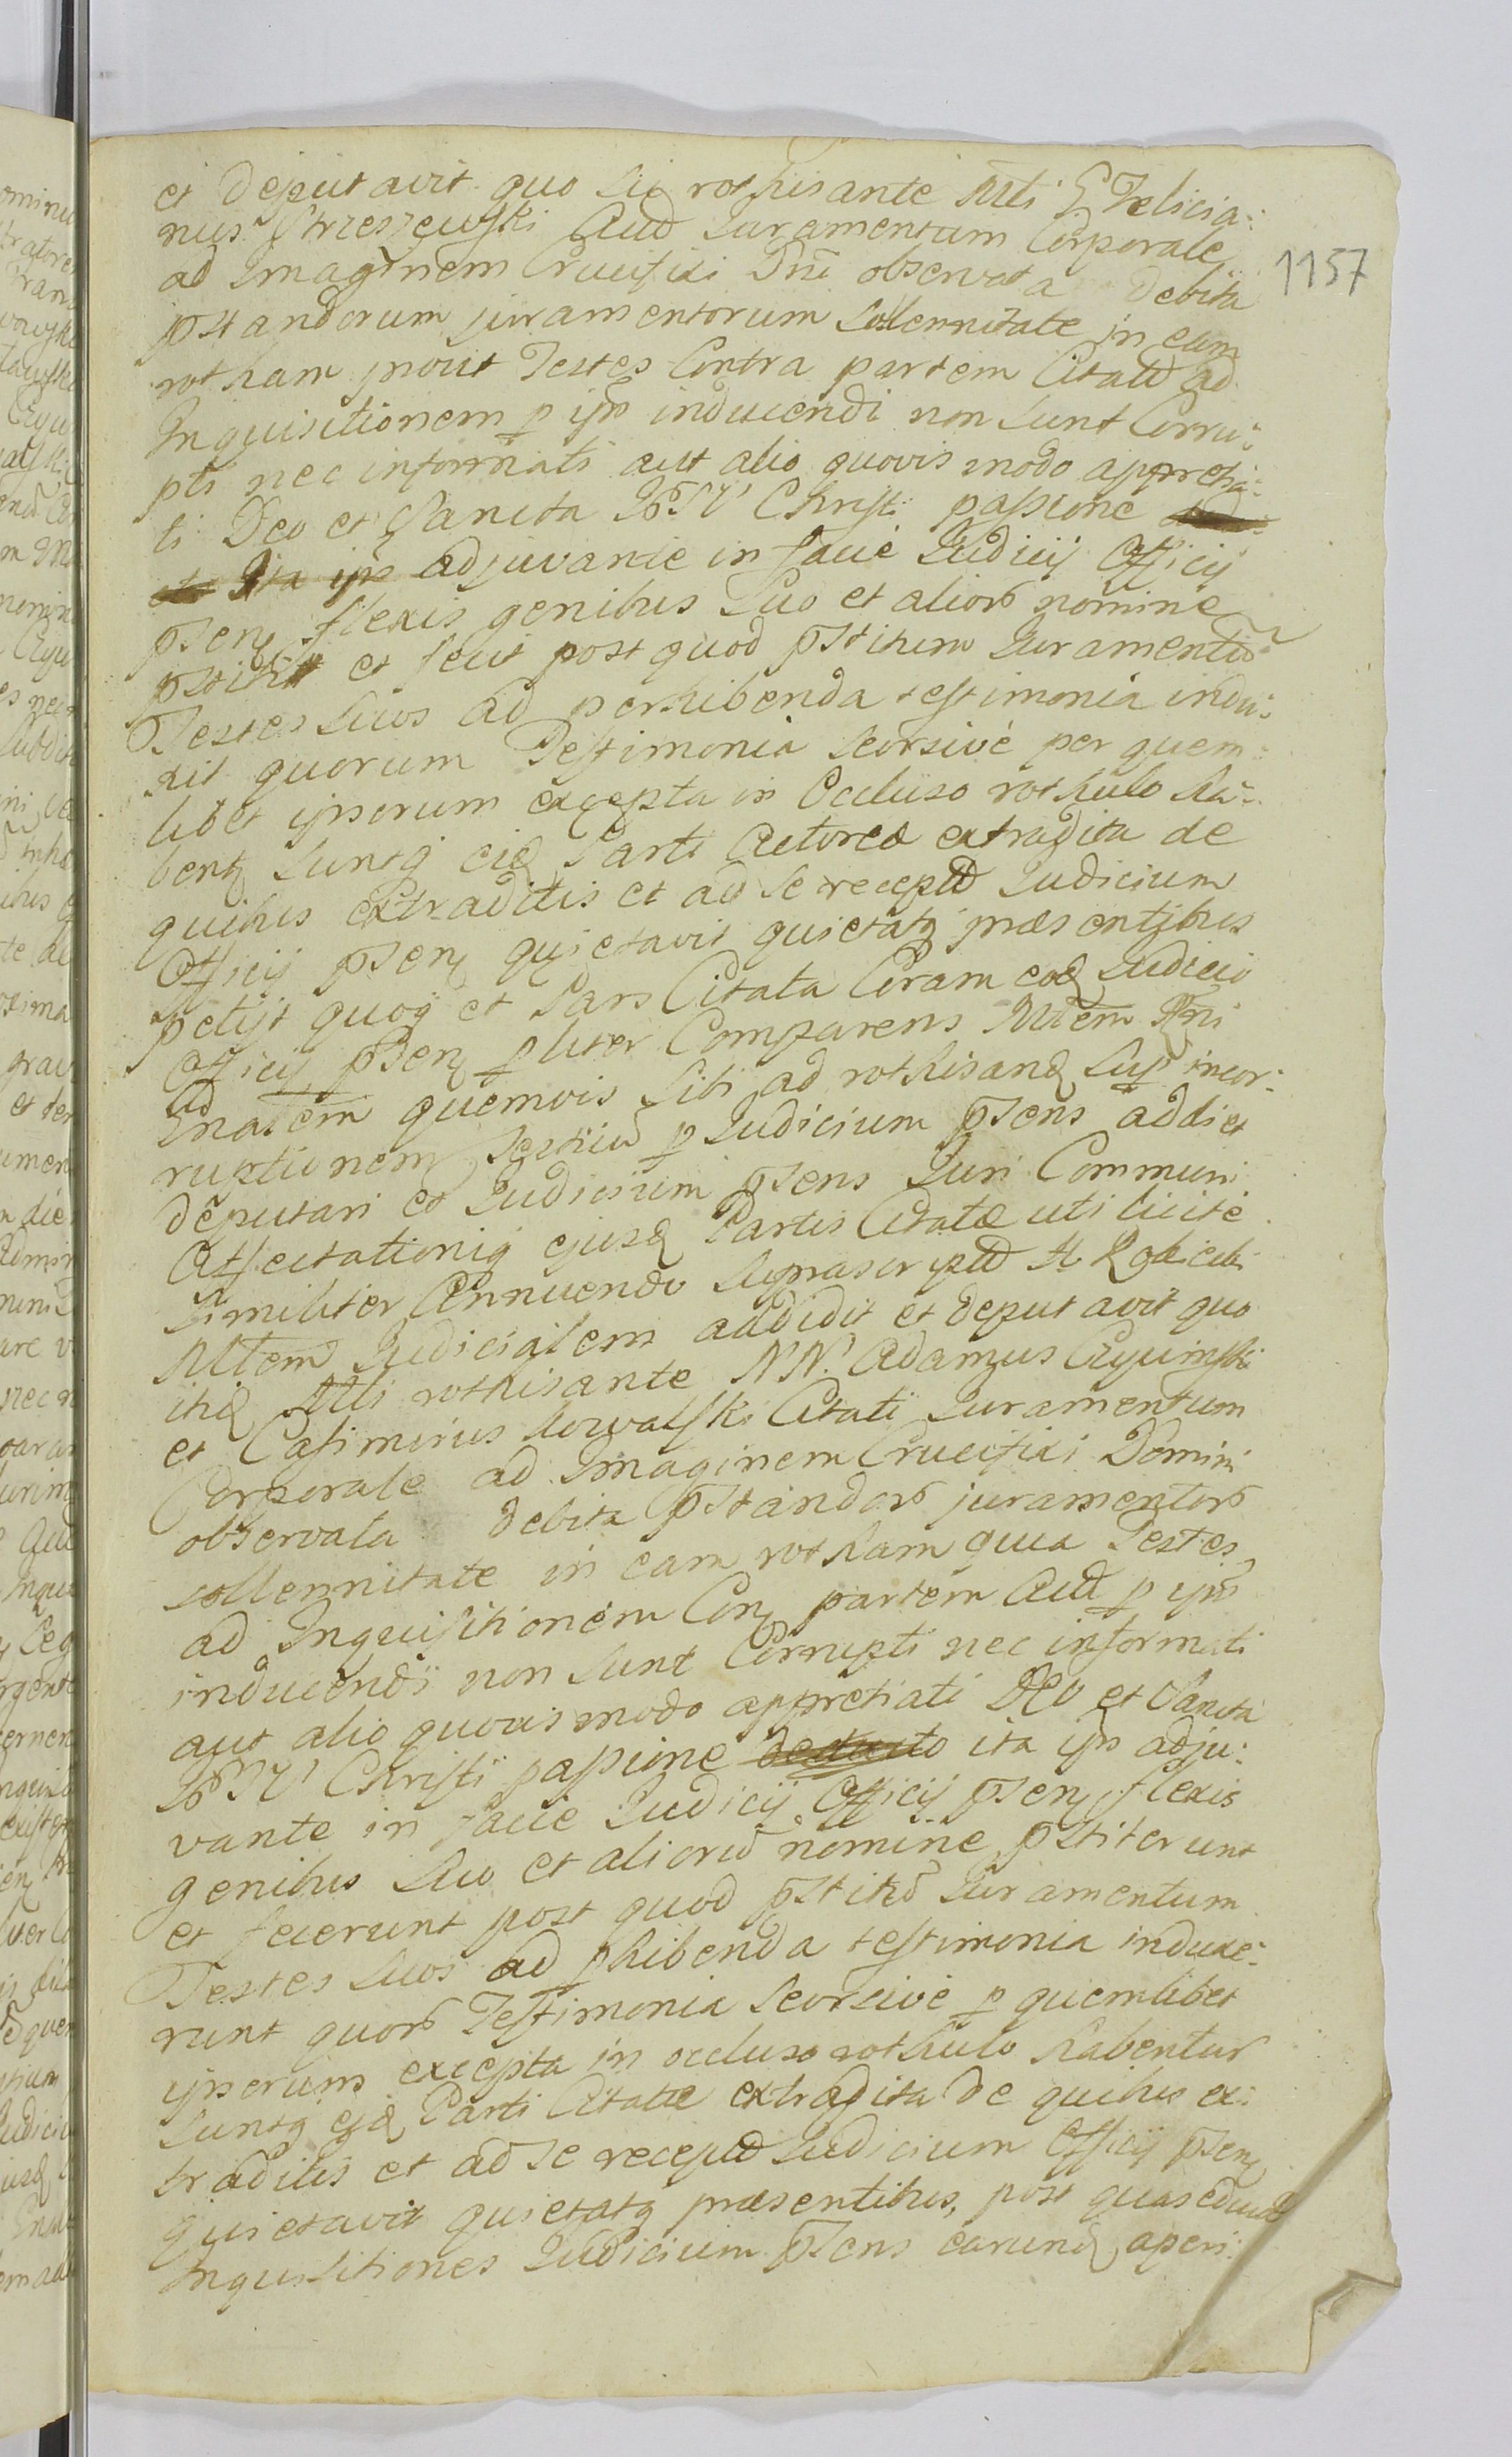 et deputavit quo sic rothisante Mtli G Felicia:
nus Strzeszewski Aud Juramentum Corporale
ad Imaginem Crucifixi Dni observata debita
1157
pstandorum juramentorum solennitate in eam
rotham prout Testes Contra partem Citatd ad
Inquisitionem p ipm inducendi non sunt Corru:
pti nec informati aut alio quovis modo appretia:
ti Deo et Sancta Christi passione
ita ips adjuvante in facie Judicij Officij
psen flexis genibus suo et alior nomine
pstitit et fecit post quod pstitum Juramentu
Testes suos ad perhibenda testimonia indu:
xit quorum Testimonia seorsive per quem:
libet ipsorum excepta in Occluso rothulo ha:
bent suntq eid Parti Actorea extradita de
quibus extraditis et ad se receptd Judicium
Officij psen quietavit quietatq præsentibus
petijt quoq et Pars Citata Coram eod Judicio
Officij psen pliter Comparens Mtem
quemvis sibi ad rothisand sup incor:
ruptionem Testiu p Judicium psens addi et
deputari et Judicium psens Juri Communi
Affectationiq ejusd Partis Citatæ uti licite
similiter Annuendo suprascriptd
Mtlem Judicialem addidit et deputavit quo
itid Mtli rothisante NN. Adamus
et Casimirus Kowalski Citati Juramentum
Corporale ad Imaginem Crucifixi Domini
observata debita pstandor juramentor
sollennitate in eam rotham quia Testes
ad Inquisitionem Con partem Aud p ipm
inducendi non sunt Corrupti nec informati
aut alio quovis modo appretiati Deo et Sancta
Christi passione ita ips adju:
vante in facie Judicij Officij psen flexis
genibus suo et alioru nomine pstiterunt
et fecerunt post quod pstitu Juramentum
Testes suos ad phibenda testimonia induxe:
runt quor Testimonia seorsive p quemlibet
ipsorum excepta in occluso rothulo habentur
suntq ejd Parti Citatæ extradita de quibus ex:
traditis et ad se receptd Judicium Officij psen
quietavit quietatq præsentibus, post quas
Inquisitiones Judicium psens earund aperi: